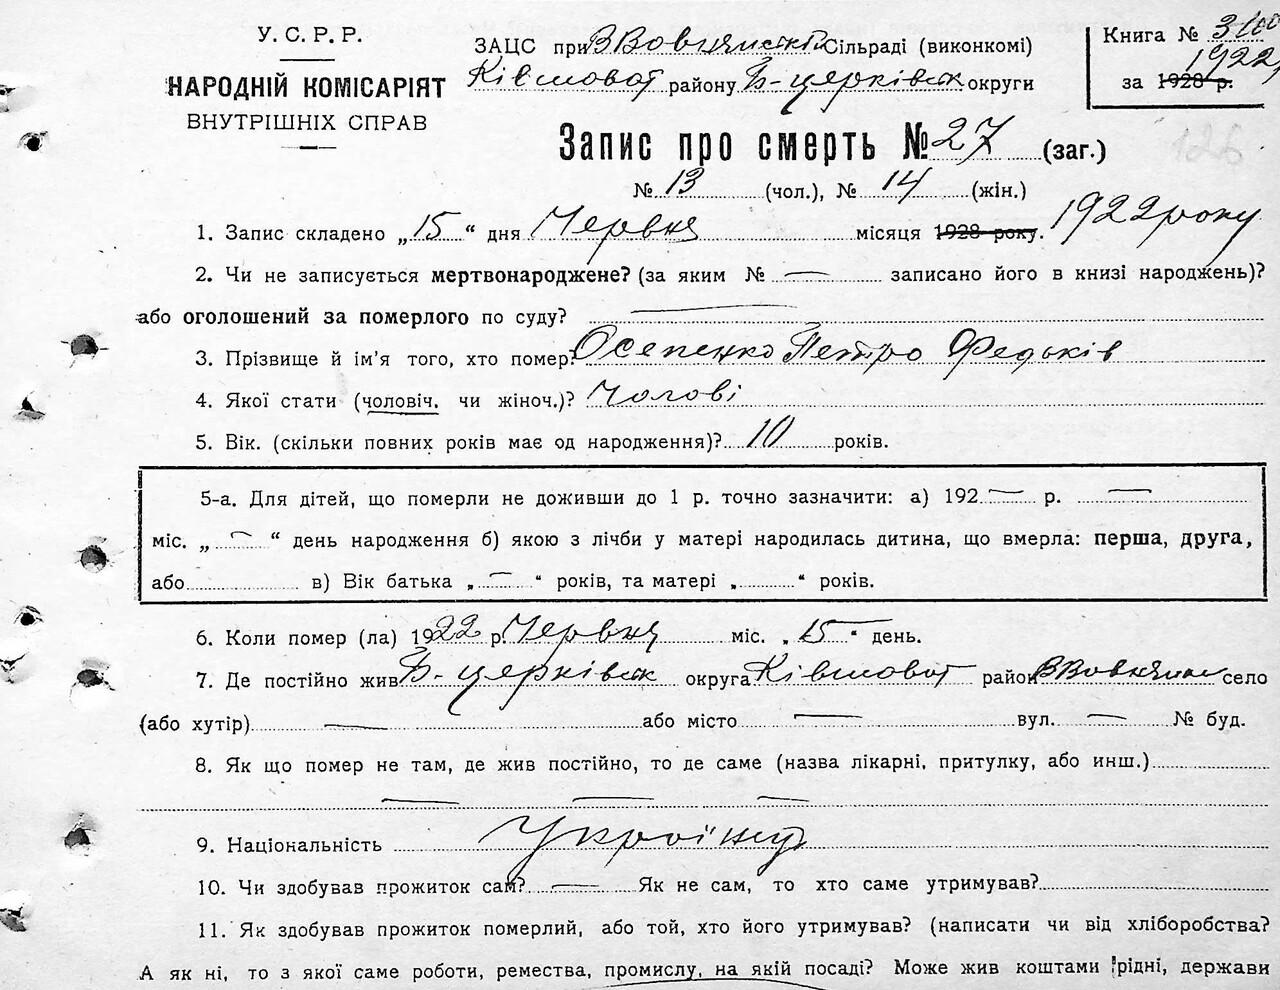 У. С. Р. Р.
НАРОДНІЙ КОМІСАРІЯТ
ВНУТРІШНІХ СПРАВ
ЗАЦС при Сільраді (виконкомі)
району Б-церківськ округи
Книга №
1922
за 1928 р.
126
Запис про смерть № 27 (заг.)
№ 13 (чол.), № 14 (жін.)
1. Запис складено „15“ дня Червня місяця 1928 року. 1922 року
2. Чи не записується мертвонароджене? (за яким № — записано його в книзі народжень)?
або оголошений за померлого по суду? —
3. Прізвище й ім'я того, хто помер? Осепенко Петро Федьків
4. Якої стати (чоловіч. чи жіноч.)? Чолові
5. Вік. (скільки повних років має од народження)? 10 років.
5-а. Для дітей, що померли не доживши до 1 р. точно зазначити: а) 192 — р. —
міс. „ — “ день народження б) якою з лічби у матері народилась дитина, що вмерла: перша, друга,
або в) Вік батька „ — “ років, та матері „ “ років.
6. Коли помер (ла) 1922 р. Червня міс. „ 15 “ день.
7. Де постійно жив Б-церківськ округа район село
(або хутір) — або місто — вул. — № буд.
8. Як що помер не там, де жив постійно, то де саме (назва лікарні, притулку, або инш.)
— — —
9. Національність Українц
10. Чи здобував прожиток сам? — Як не сам, то хто саме утримував?
11. Як здобував прожиток померлий, або той, хто його утримував? (написати чи від хліборобства?
А як ні, то з якої саме роботи, ремества, промислу, на якій посаді? Може жив коштами рідні, держави